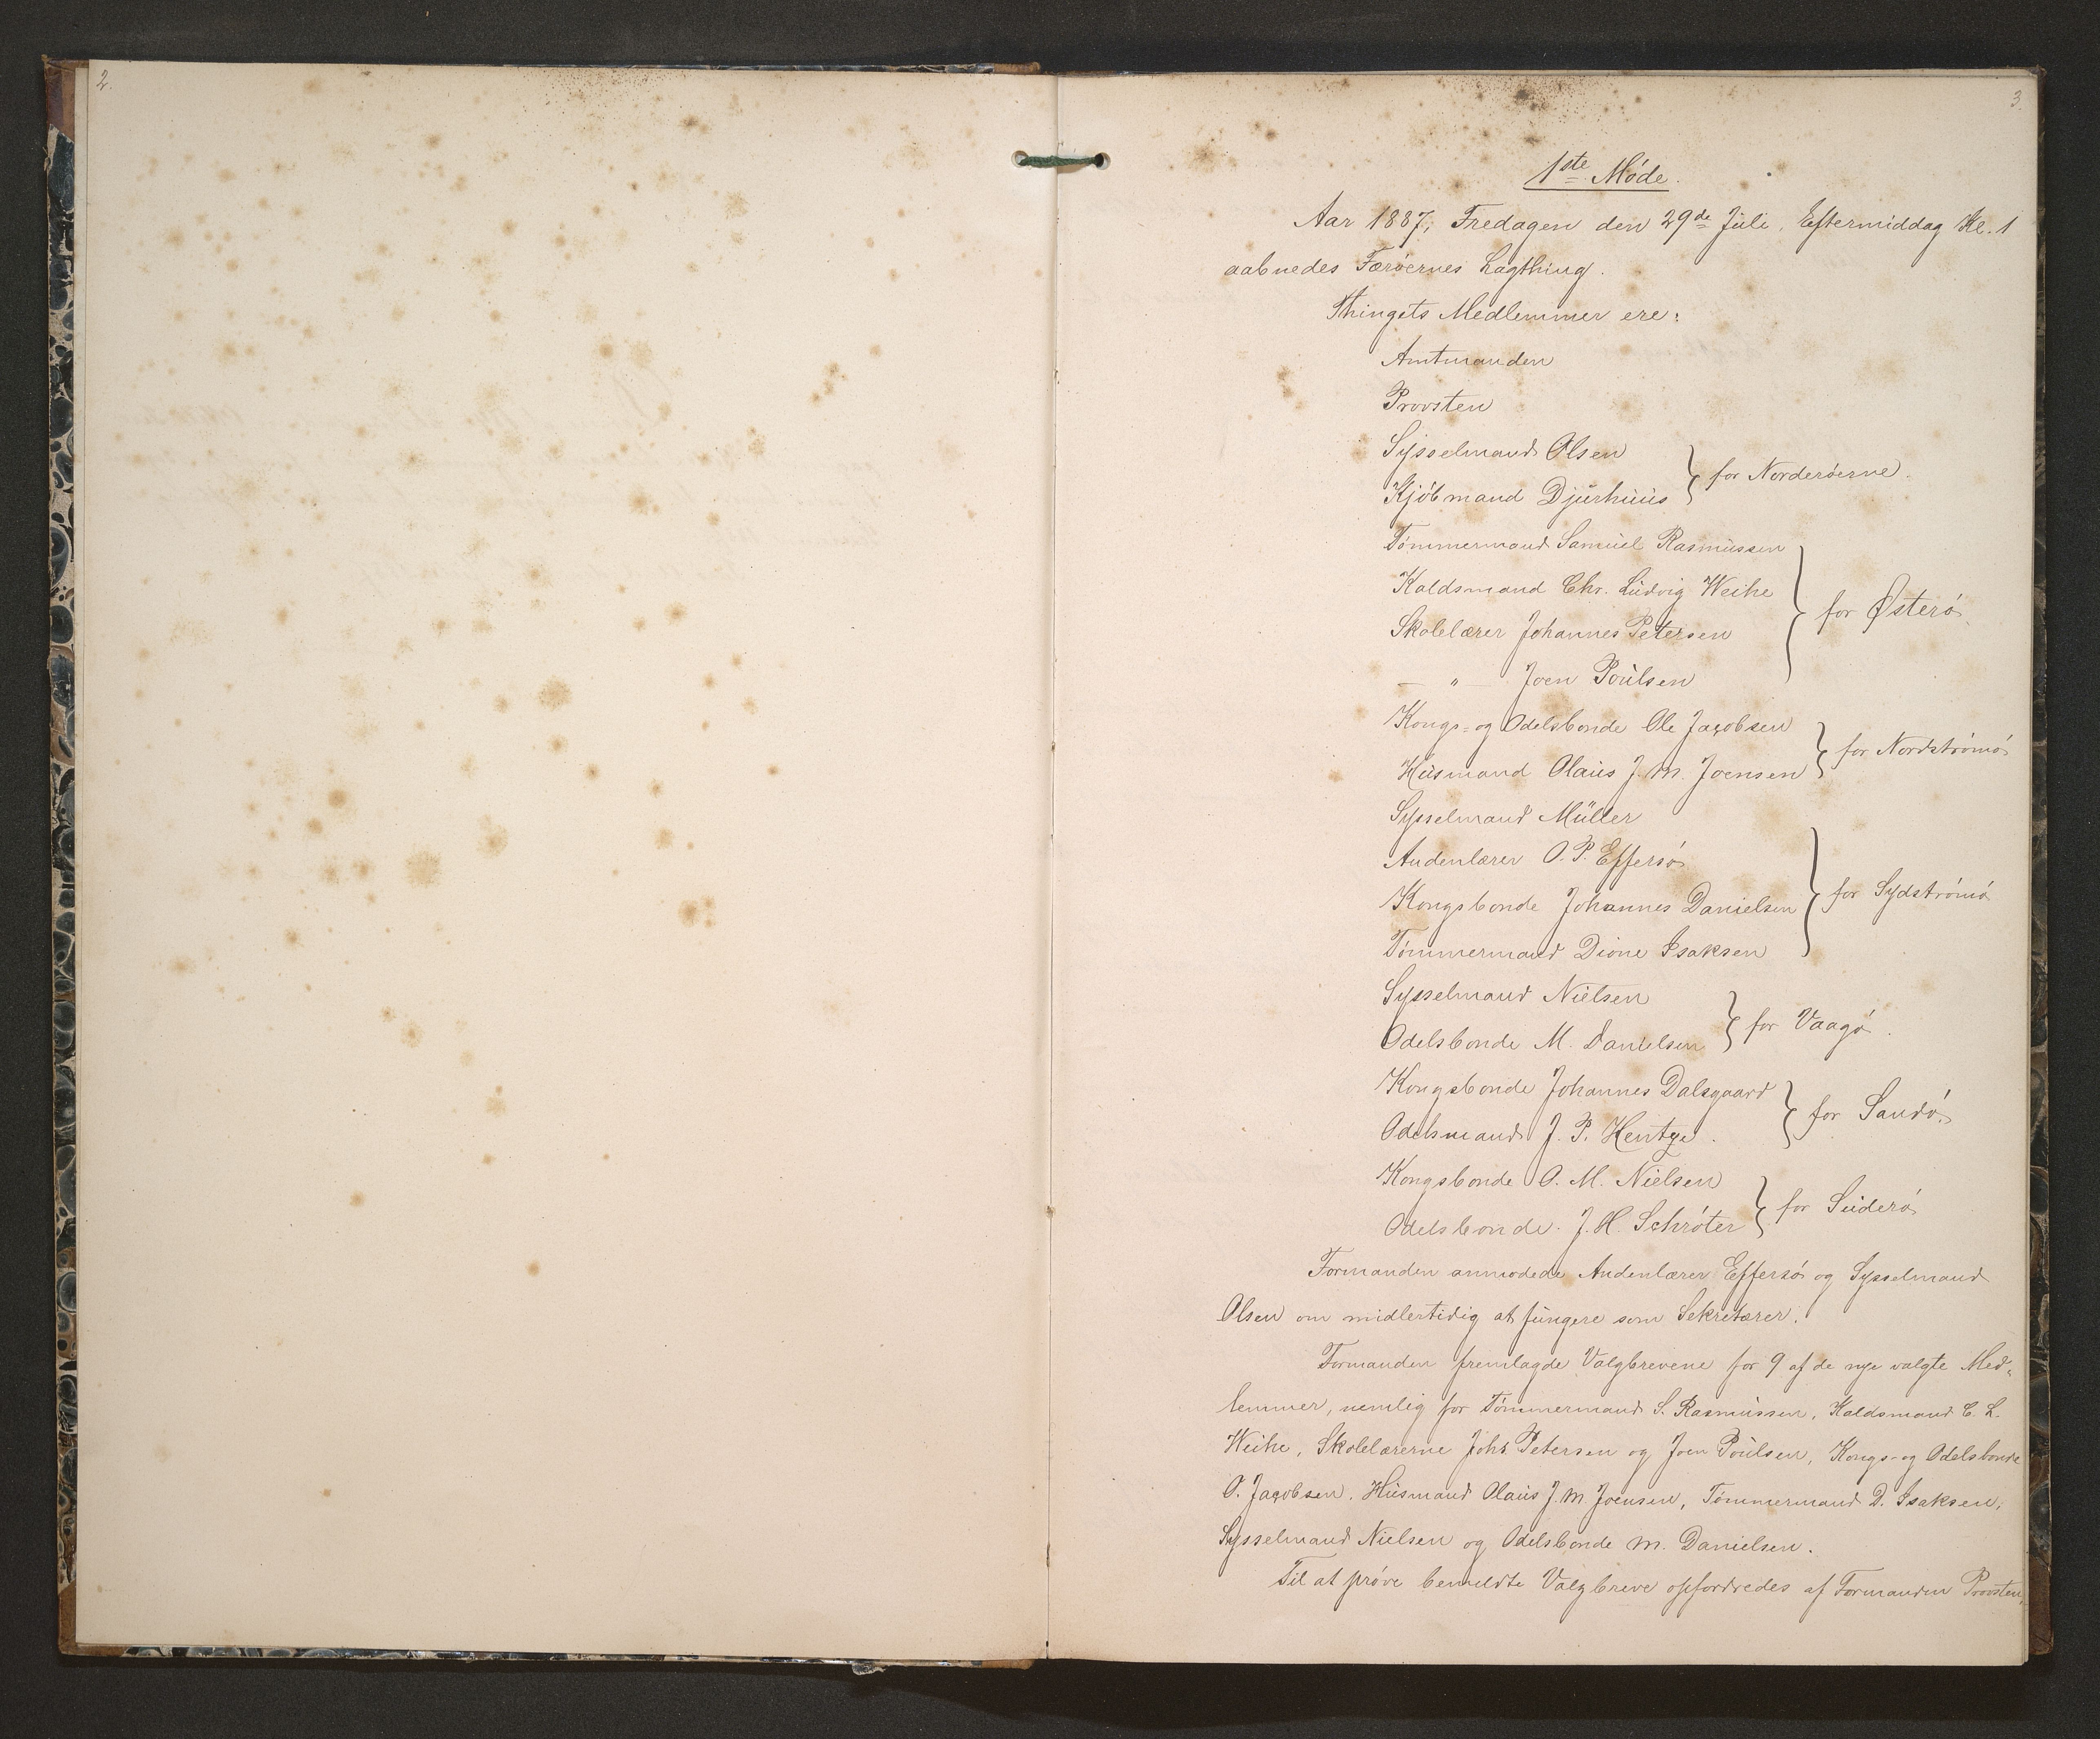 2.
3.
1ste Møde.
Aar 1887, Fredagen den 29de Juli, Eftermiddag Kl. 1
aabnedes Færøernes Lagthing.
Thingets Medlemmer ere:
Amtmanden
Provsten
Sysselmand Olsen
Kjøbmand Djurhuus } for Norderøerne.
Tømmermand Samuel Rasmussen
Kaldsmand Chr. Ludvig Weihe
Skolelærer Johannes Petersen
— " — Joen Poulsen } for Østerø.
Kongs- og Odelsbonde Ole Jacobsen
Husmand Olaus J. M. Joensen } for Nordstrømø
Sysselmand Müller
Andenlærer O. P. Effersø
Kongsbonde Johannes Danielsen
Tømmermand Dione Isaksen } for Sydstrømø
Sysselmand Nielsen
Odelsbonde M. Danielsen } for Vaagø.
Kongsbonde Johannes Dalsgaard
Odelsmand J. P. Hentze. } for Sandø.
Kongsbonde O. M. Nielsen
Odelsbonde J. H. Schrøter } for Suderø
Formanden anmodede Andenlærer Effersø og Sysselmand
Olsen om midlertidig at fungere som Sekretærer.
Formanden fremlagde Valgbrevene for 9 af de nye valgte Med-
lemmer, nemlig for Tømmermand S. Rasmussen, Kaldsmand C. L.
Weihe, Skolelærerne Johs Petersen og Joen Poulsen, Kongs- og Odelsbonde
O. Jacobsen, Husmand Olaus J. M. Joensen, Tømmermand D. Isaksen,
Sysselmand Nielsen og Odelsbonde M. Danielsen.
Til at prøve bemeldte Valgbreve opfordredes af Formanden Provsten,